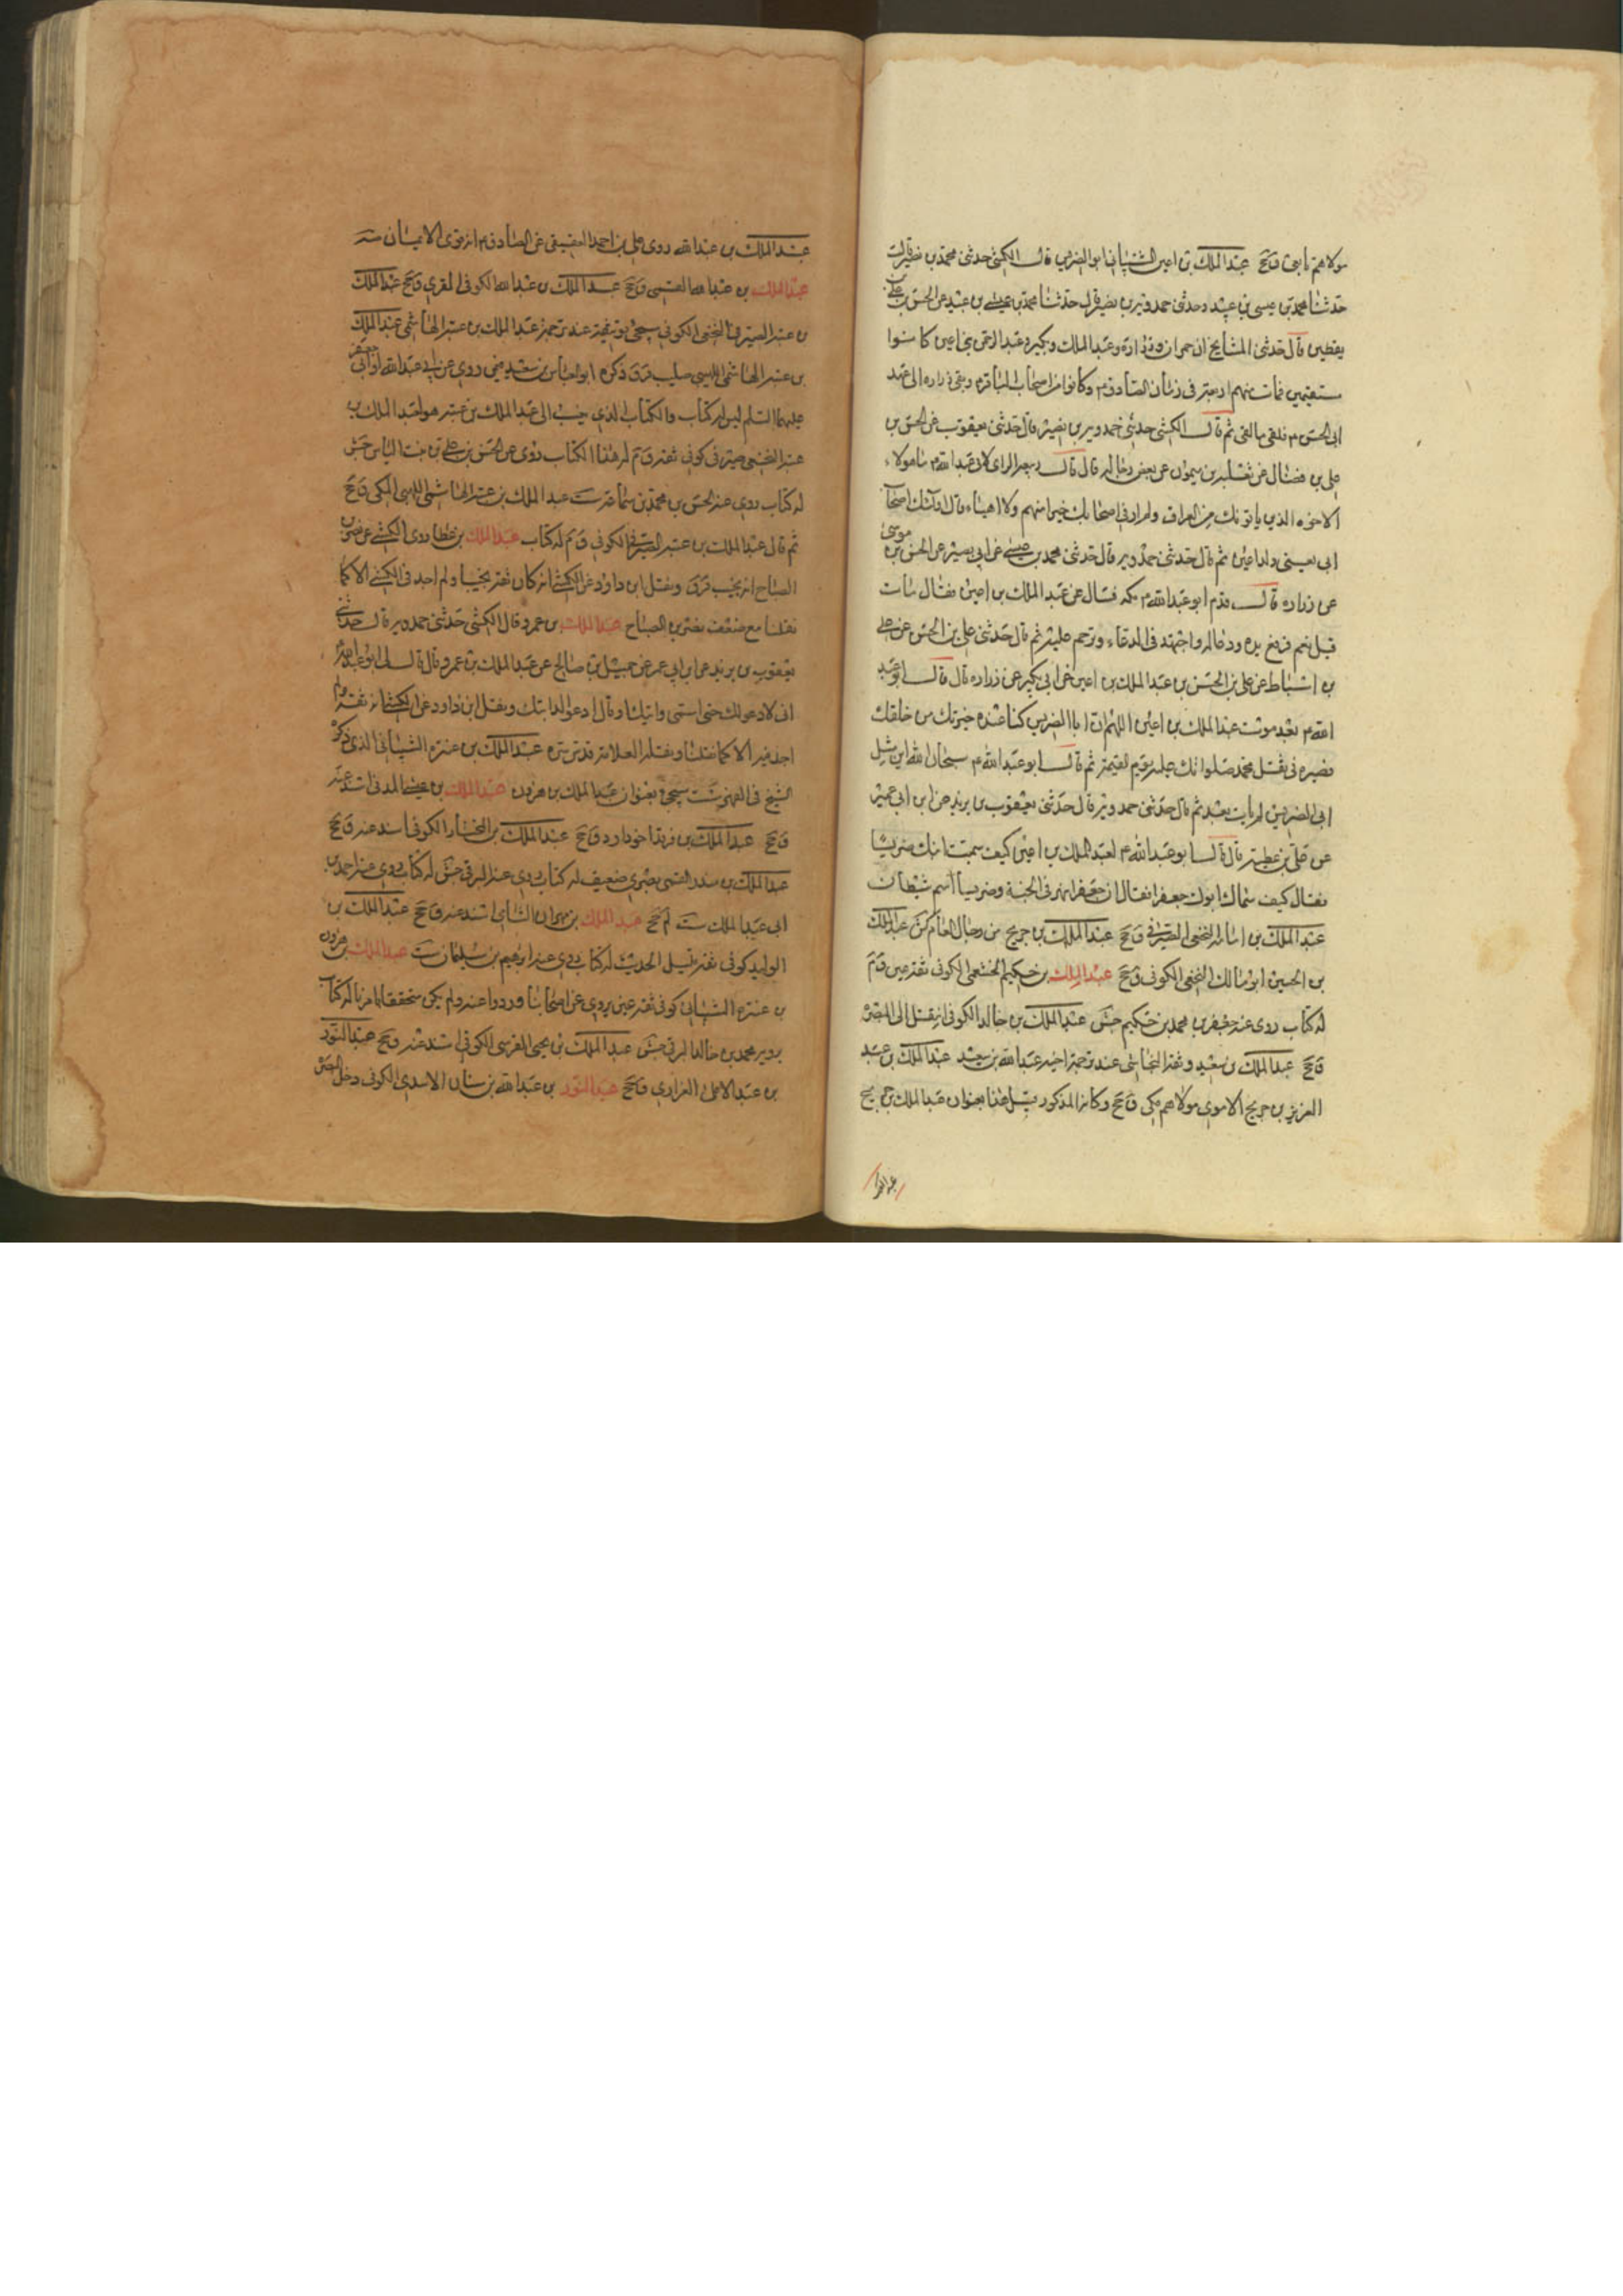 مولاهم تابعی ق جخ عبد الملك بن اعين الشيبانی ابو الضريس قال الكشی حدثنی محمد بن نصير قال
حدثنا محمد بن عيسی بن عبيد وحدثنی حمدويه بن نصير قال حدثنا محمد بن عيسی بن عبيد عن الحسن بن علی بن
يقطين قال حدثنی المشايخ ان حمران وزرارة وعبد الملك وبكير وعبد الرحمن بنی اعين كانوا
مستقيمين فمات منهم اربعة فی زمان الصادق م وكانوا من اصحاب الباقر م وبقی زراره الی عهد
ابی الحسن م فلقی ما لقی ثم قال الكشی حدثنی حمدويه بن نصير قال حدثنی يعقوب عن الحسن بن
علی بن فضال عن ثعلبه بن ميمون عن بعض رجاله قال قال ربيعه الرای لابی عبد الله م ما هولاء
الاخوه الذين ياتونك من العراق ولم ار فی اصحابك خيرا منهم ولا اهيناء قال اولئك اصحاب
ابی يعنی ولد اعين ثم قال حدثنی حمدويه قال حدثنی محمد بن عيسی عن ابی نصير عن الحسن بن موسی
عن زراره قال قدم ابو عبد الله م مكه فسال عن عبد الملك بن اعين فقال مات
قيل نعم فرفع يده ودعا له واجتهد فی الدعاء وترحم عليه ثم قال حدثنی علی بن الحسن عن علی
بن اسباط عن علی بن الحسن بن عبد الملك بن اعين عن ابی بكير عن زراره قال قال ابو عبد
الله م بعد موت عبد الملك بن اعين اللهم ان ابا الضريس كنا عنده خيرتك من خلقك
فصيره فی ثقل محمد صلواتك عليه يوم القيمة ثم قال ابو عبد الله م سبحان الله اين مثل
ابی الضريس لم يات بعد ثم قال حدثنی حمدويه قال حدثنی يعقوب بن يزيد عن ابن ابی عمير
عن علی بن عطيه قال قال ابو عبد الله م لعبد الملك بن اعين كيف سميت ابنك ضريسا
فقال كيف سماك ابوك جعفرا فقال ان جعفرا نهر فی الجنة وضريسا اسم شيطان
عبد الملك بن النخعی الصيرفی ق جخ عبد الملك بن جريج من رجال العامه كش عبد الملك
بن الحسين ابو مالك النخعی الكوفی ق جخ عبد الملك بن حكيم الخثعمی الكوفی ثقه عين ق م
له كتاب روی عنه جعفر بن محمد بن حكيم جش عبد الملك بن خالد الكوفی انتقل الی البصره
ق جخ عبد الملك بن سعيد وثقه النجاشی عند ترجمة اخيه عبد الله بن سعيد عبد الملك بن عبد
العزيز بن جريج الاموی مولاهم مكی ق جخ وكانه المذكور قبيل هذا بعنوان عبد الملك بن جريج
عبد الملك
عبد الملك بن عبد الله روی علی بن احمد العقيقی عن الصادق م انه قوی الايمان
عبد الملك بن عبد الله القمی ق جخ عبد الملك بن عبد الله الكوفی المقری ق جخ عبد الملك
بن عتبه الصيرفی النخعی الكوفی سيجی توثيقه عند ترجمة عبد الملك بن عتبه الهاشمی عبد الملك
بن عتبه الهاشمی اللهبی صليب ق ق ذكره ابو العباس بن سعيد فيمن روی عن ابی عبد الله او ابی جعفر
عليهما السلم ليس له كتاب والكتاب الذی ينسب الی عبد الملك بن عتبه هو لعبد الملك بن
عتبه النخعی صيرفی كوفی ثقه ق م له هذا الكتاب روی عن الحسن بن علی بن بنت الياس جش
له كتاب روی عنه الحسن بن محمد بن سماعة ست عبد الملك بن عتبه الهاشمی اللهبی المكی ق جخ
ثم قال عبد الملك بن عتبه الصيرفی الكوفی ق م له كتاب عبد الملك بن عطا روی الكشی عن نصر بن
الصباح انه نجيب ق ق ونقل ابن داود عن الكشی انه كان ثقة نجيبا ولم اجد فی الكشی الا كما
نقلنا مع ضعف نصر بن الصباح عبد الملك بن عمرو قال الكشی حدثنی حمدويه قال حدثنی
يعقوب بن يزيد عن ابن ابی عمير عن جميل بن صالح عن عبد الملك بن عمرو قال قال لی ابو عبد الله م
انی لادعو لك حتی اسمی دابتك او قال ادعو لدابتك ونقل ابن داود عن الكشی انه ثقة ولم
اجد فيه الا كما نقلنا ونقله العلامة قدس سره عبد الملك بن عنتره الشيبانی الذی ذكره
الشيخ فی الفهرست سيجی بعنوان عبد الملك بن هرون عبد الملك بن عيسی المدنی اسند عنه
ق جخ عبد الملك بن فرقد اخو داود ق جخ عبد الملك بن المختار الكوفی اسند عنه ق جخ
عبد الملك بن منذر القمی بصری ضعيف له كتاب روی عنه البرقی جش له كتاب روی عنه احمد بن
ابی عبد الملك ست لم جخ عبد الملك بن مهران الشامی اسند عنه ق جخ عبد الملك بن
الوليد كوفی ثقه قليل الحديث له كتاب روی عنه ابرهيم بن سليمان ست عبد الملك بن هرون
بن عنتره الشيبانی كوفی ثقه عين يروی عن اصحابنا ورووا عنه ولم يكن متحققا بامرنا له كتاب
يرويه محمد بن خالد البرقی جش عبد الملك بن يحيی القرشی الكوفی اسند عنه ق جخ عبد النور
بن عبد الاعلی الفزاری ق جخ عبد النور بن عبد الله بن سنان الاسدی الكوفی دخل البصره